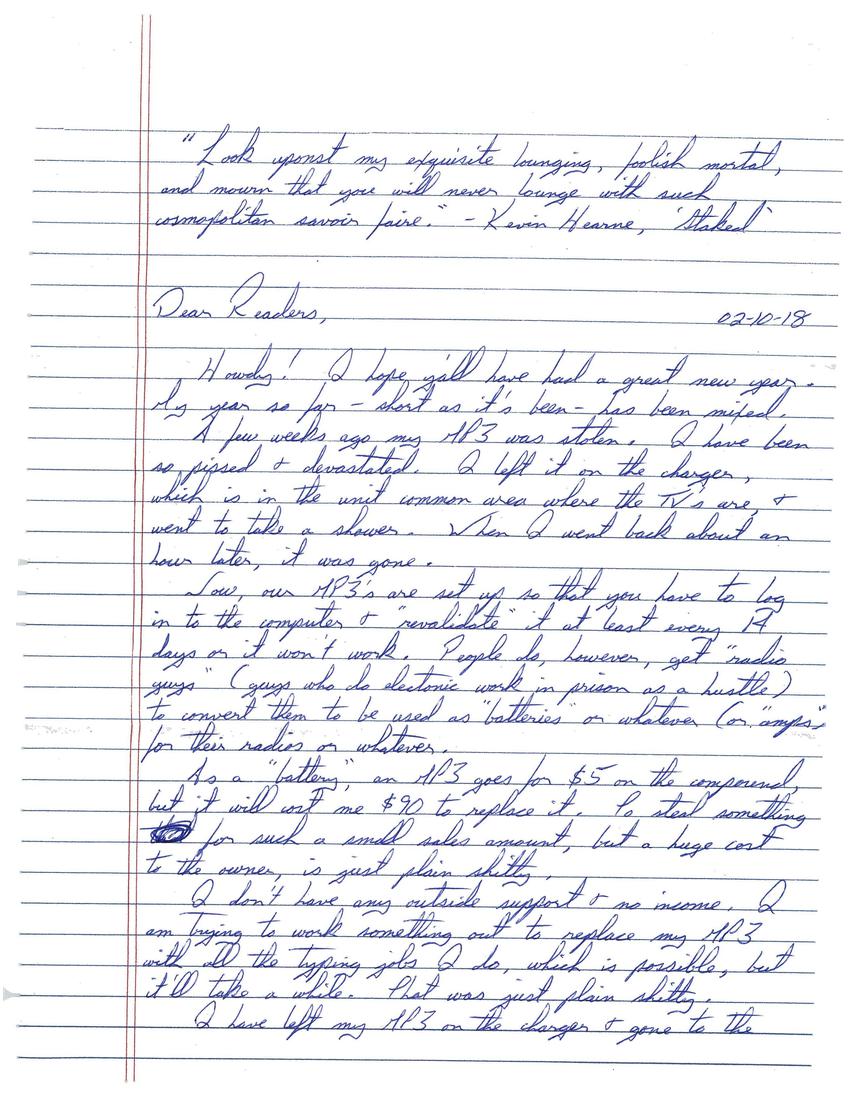 "Look uponst my exquisite lounging, foolish mortal,
and mourn that you will never lounge with such
cosmopolitan savoir faire." - Kevin Hearne, 'Staked'
Dear Readers, 02-10-18
Howdy! I hope y'all have had a great new year.
My year so far - short as it's been - has been mixed.
A few weeks ago my MP3 was stolen. I have been
so pissed & devastated. I left it on the charger,
which is in the unit common area where the TV's are, &
went to take a shower. When I went back about an
hour later, it was gone.
Now, our MP3's are set up so that you have to log
in to the computer & "revalidate" it at least every 14
days or it won't work. People do, however, get "radio
guys" (guys who do electonic work in prison as a hustle)
to convert them to be used as "batteries" or whatever (or "amps"
for their radios or whatever.
As a "battery", an MP3 goes for $5 on the compound,
but it will cost me $90 to replace it. To steal something
for such a small sales amount, but a huge cost
to the owner, is just plain shitty.
I don't have any outside support & no income. I
am trying to work something out to replace my MP3
with all the typing jobs I do, which is possible, but
it'll take a while. That was just plain shitty.
I have left my MP3 on the charger & gone to the